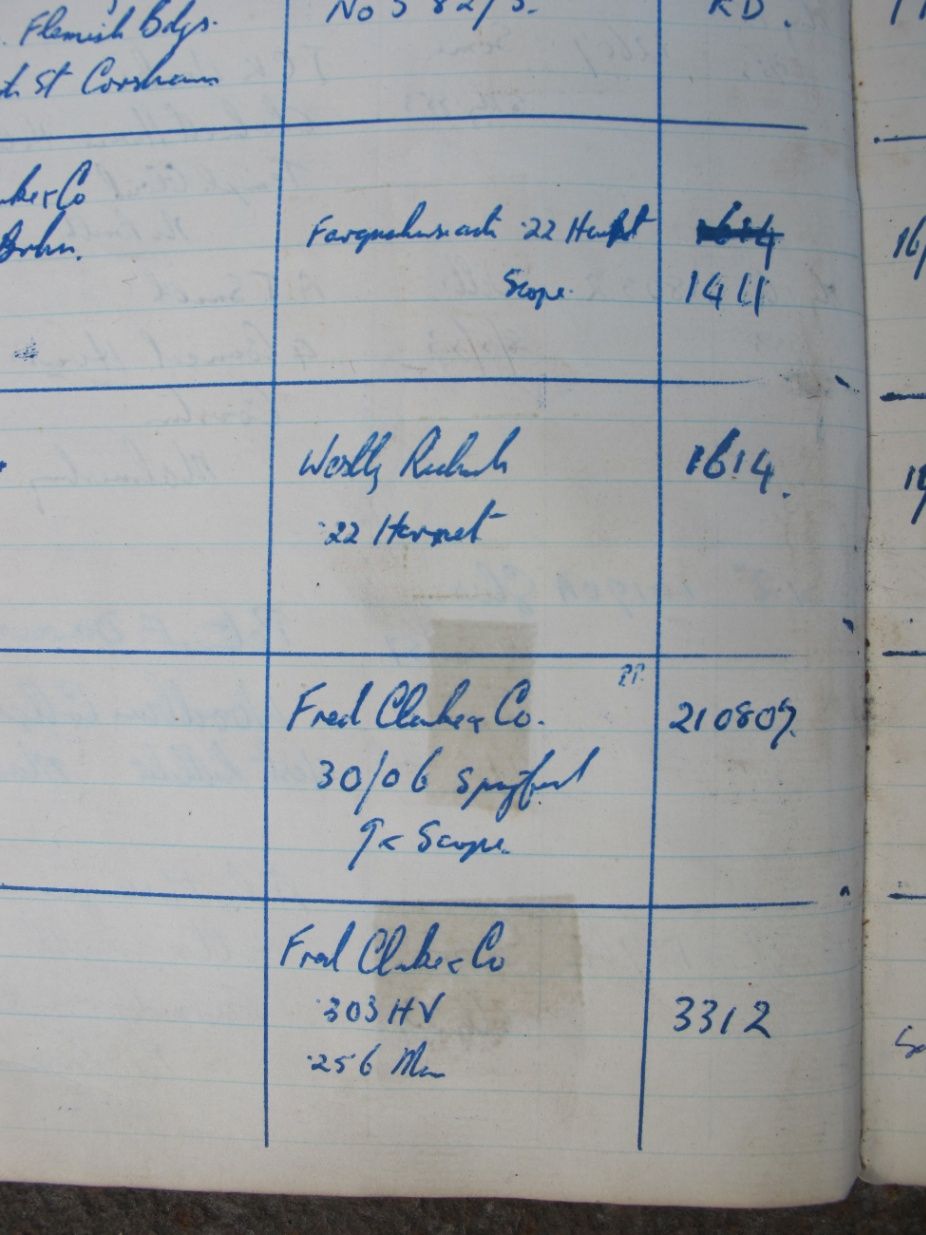 Flemish Bdgs.
No 5 82/5.
RD.
St Corsham
Co
Farquharson .22 Hornet
1614
Scope.
1411
Westly Richards
1614.
.22 Hornet
PP.
Fred Clarke & Co.
210807.
30/06 Springfield
9x Scope.
Fred Clarke & Co
.303 HV
3312
.256 Man